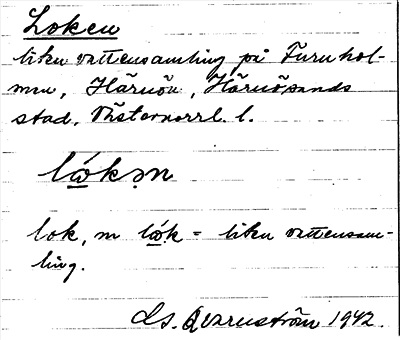 Loken
liten vattensamling på Furuhol-
men, Härnön, Härnösands
stad, Västernorrl. l.
lók
lok, m = liten vattensam-
ling.
Qvarnström 1942.